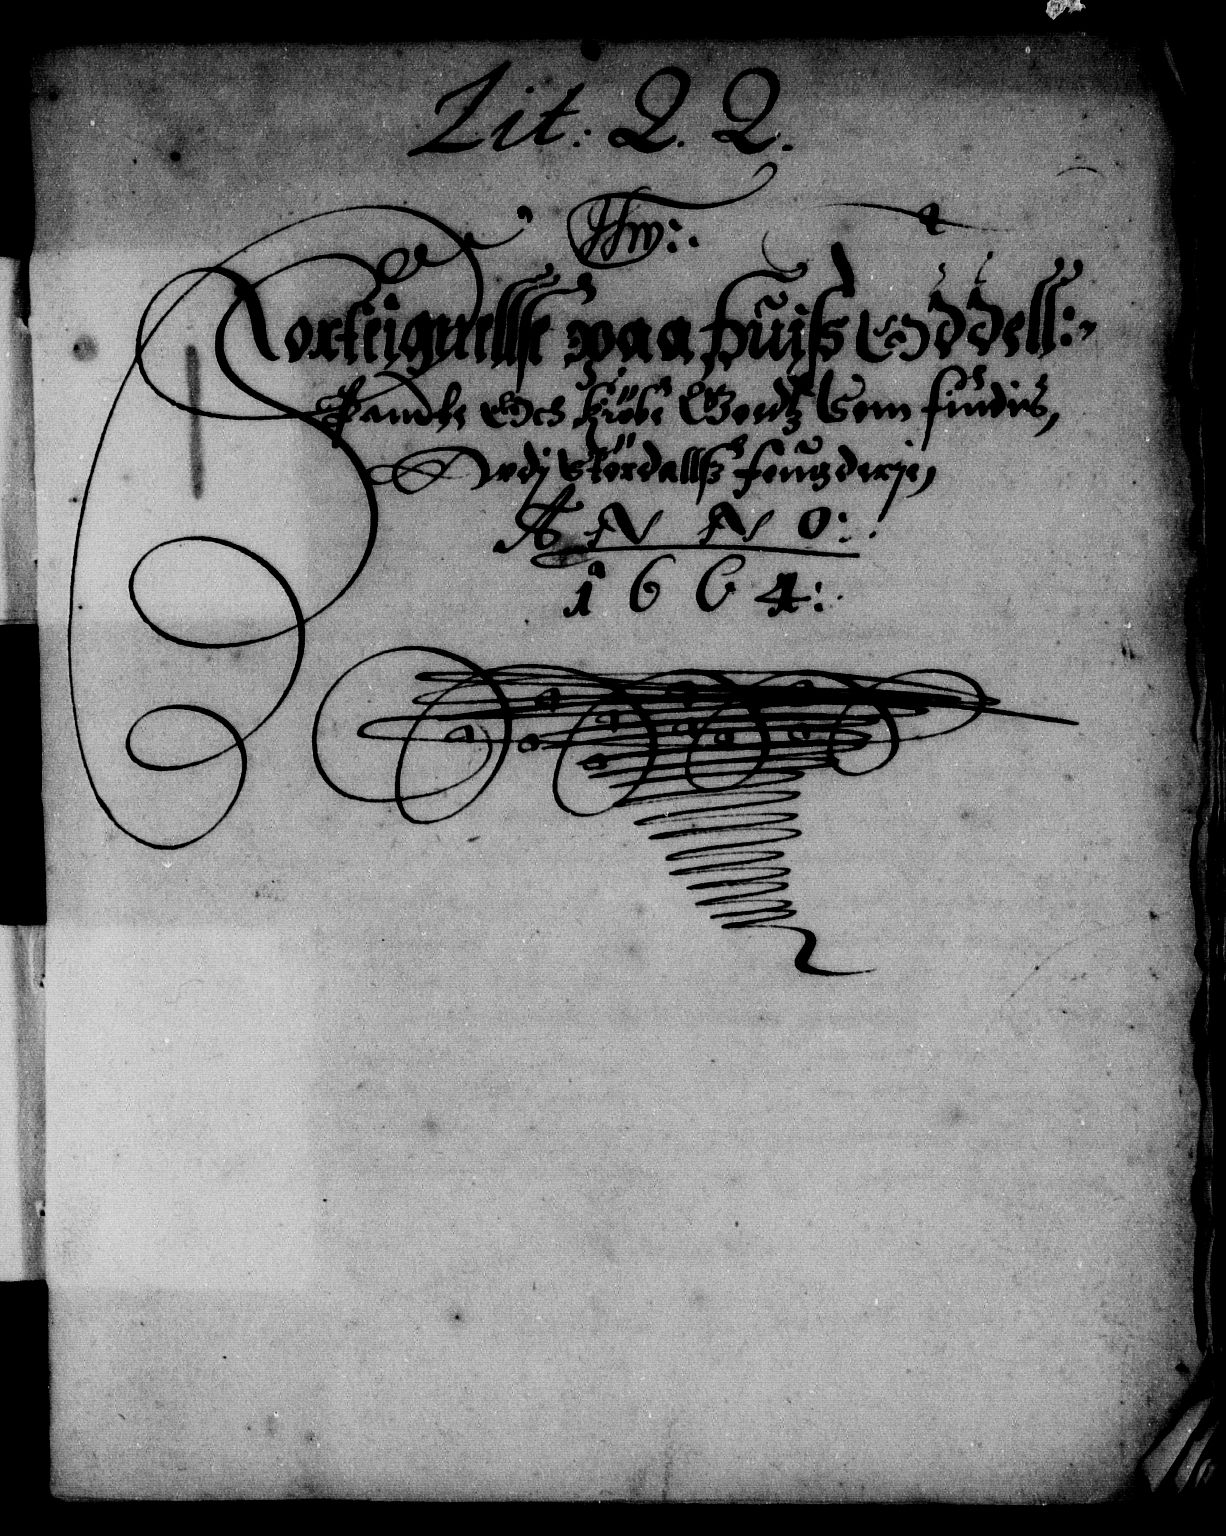 Lit: Q. Q.
Forteignelsse paa huiss Oddell:
Pandte Och kiøbe Goedtz Som findis,
Vdj Størdallss fougderje,
ANNO:
1664: